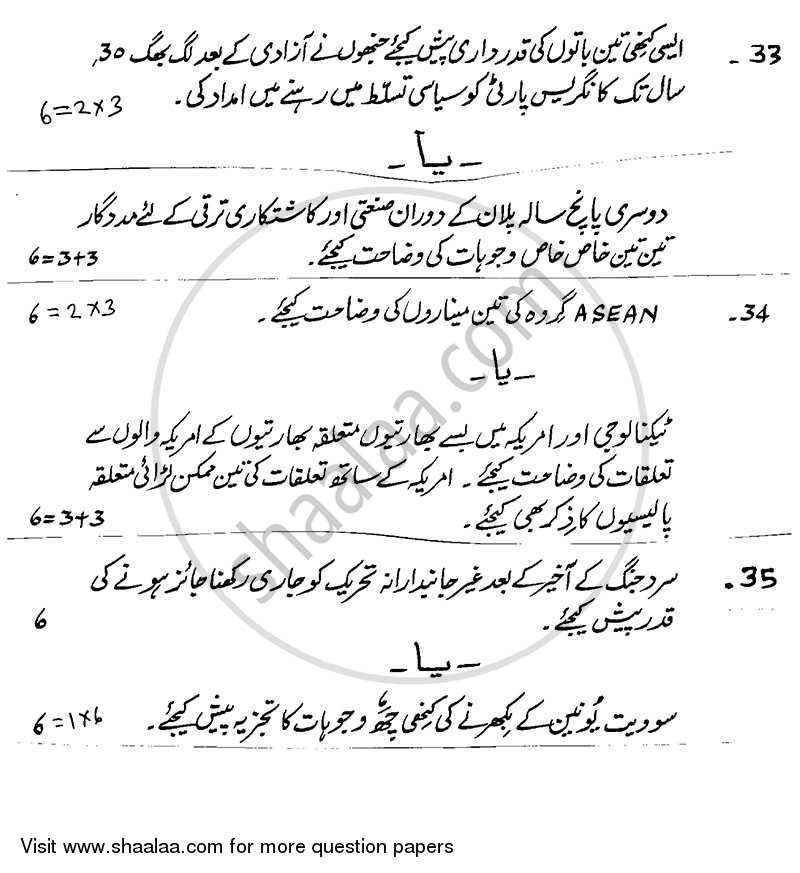 33 - ایسی کنھی تین باتوں کی قدر داری پیش کیجئے جنھوں نے آزادی کے بعد لگ بھگ 30,
سال تک کانگریس پارٹی کو سیاسی تسلّط میں رہنے میں امداد کی۔ 6=2×3
- یا -
دوسری پانچ سالہ پلان کے دوران صنعتی اور کاشتکاری ترقی کے لئے مددگار
تین تین خاص خاص وجوہات کی وضاحت کیجئے۔ 6=3+3
34- ASEAN گروہ کی تین میناروں کی وضاحت کیجئے۔ 6=2×3
- یا -
ٹیکنالوجی اور امریکہ میں بسے بھارتیوں متعلقہ بھارتیوں کے امریکہ والوں سے
تعلقات کی وضاحت کیجئے۔ امریکہ کے ساتھ تعلقات کی تین ممکن لڑائی متعلقہ
پالیسیوں کا ذکر بھی کیجئے۔ 6=3+3
35. سرد جنگ کے آخیر کے بعد غیر جانبدارانہ تحریک کو جاری رکھنا جائز ہونے کی
قدر پیش کیجئے۔ 6
- یا -
سوویت یُونین کے بکھرنے کی کنھی چھ وجوہات کا تجزیہ پیش کیجئے۔ 6=1×6
shaalaa.com
Visit www.shaalaa.com for more question papers